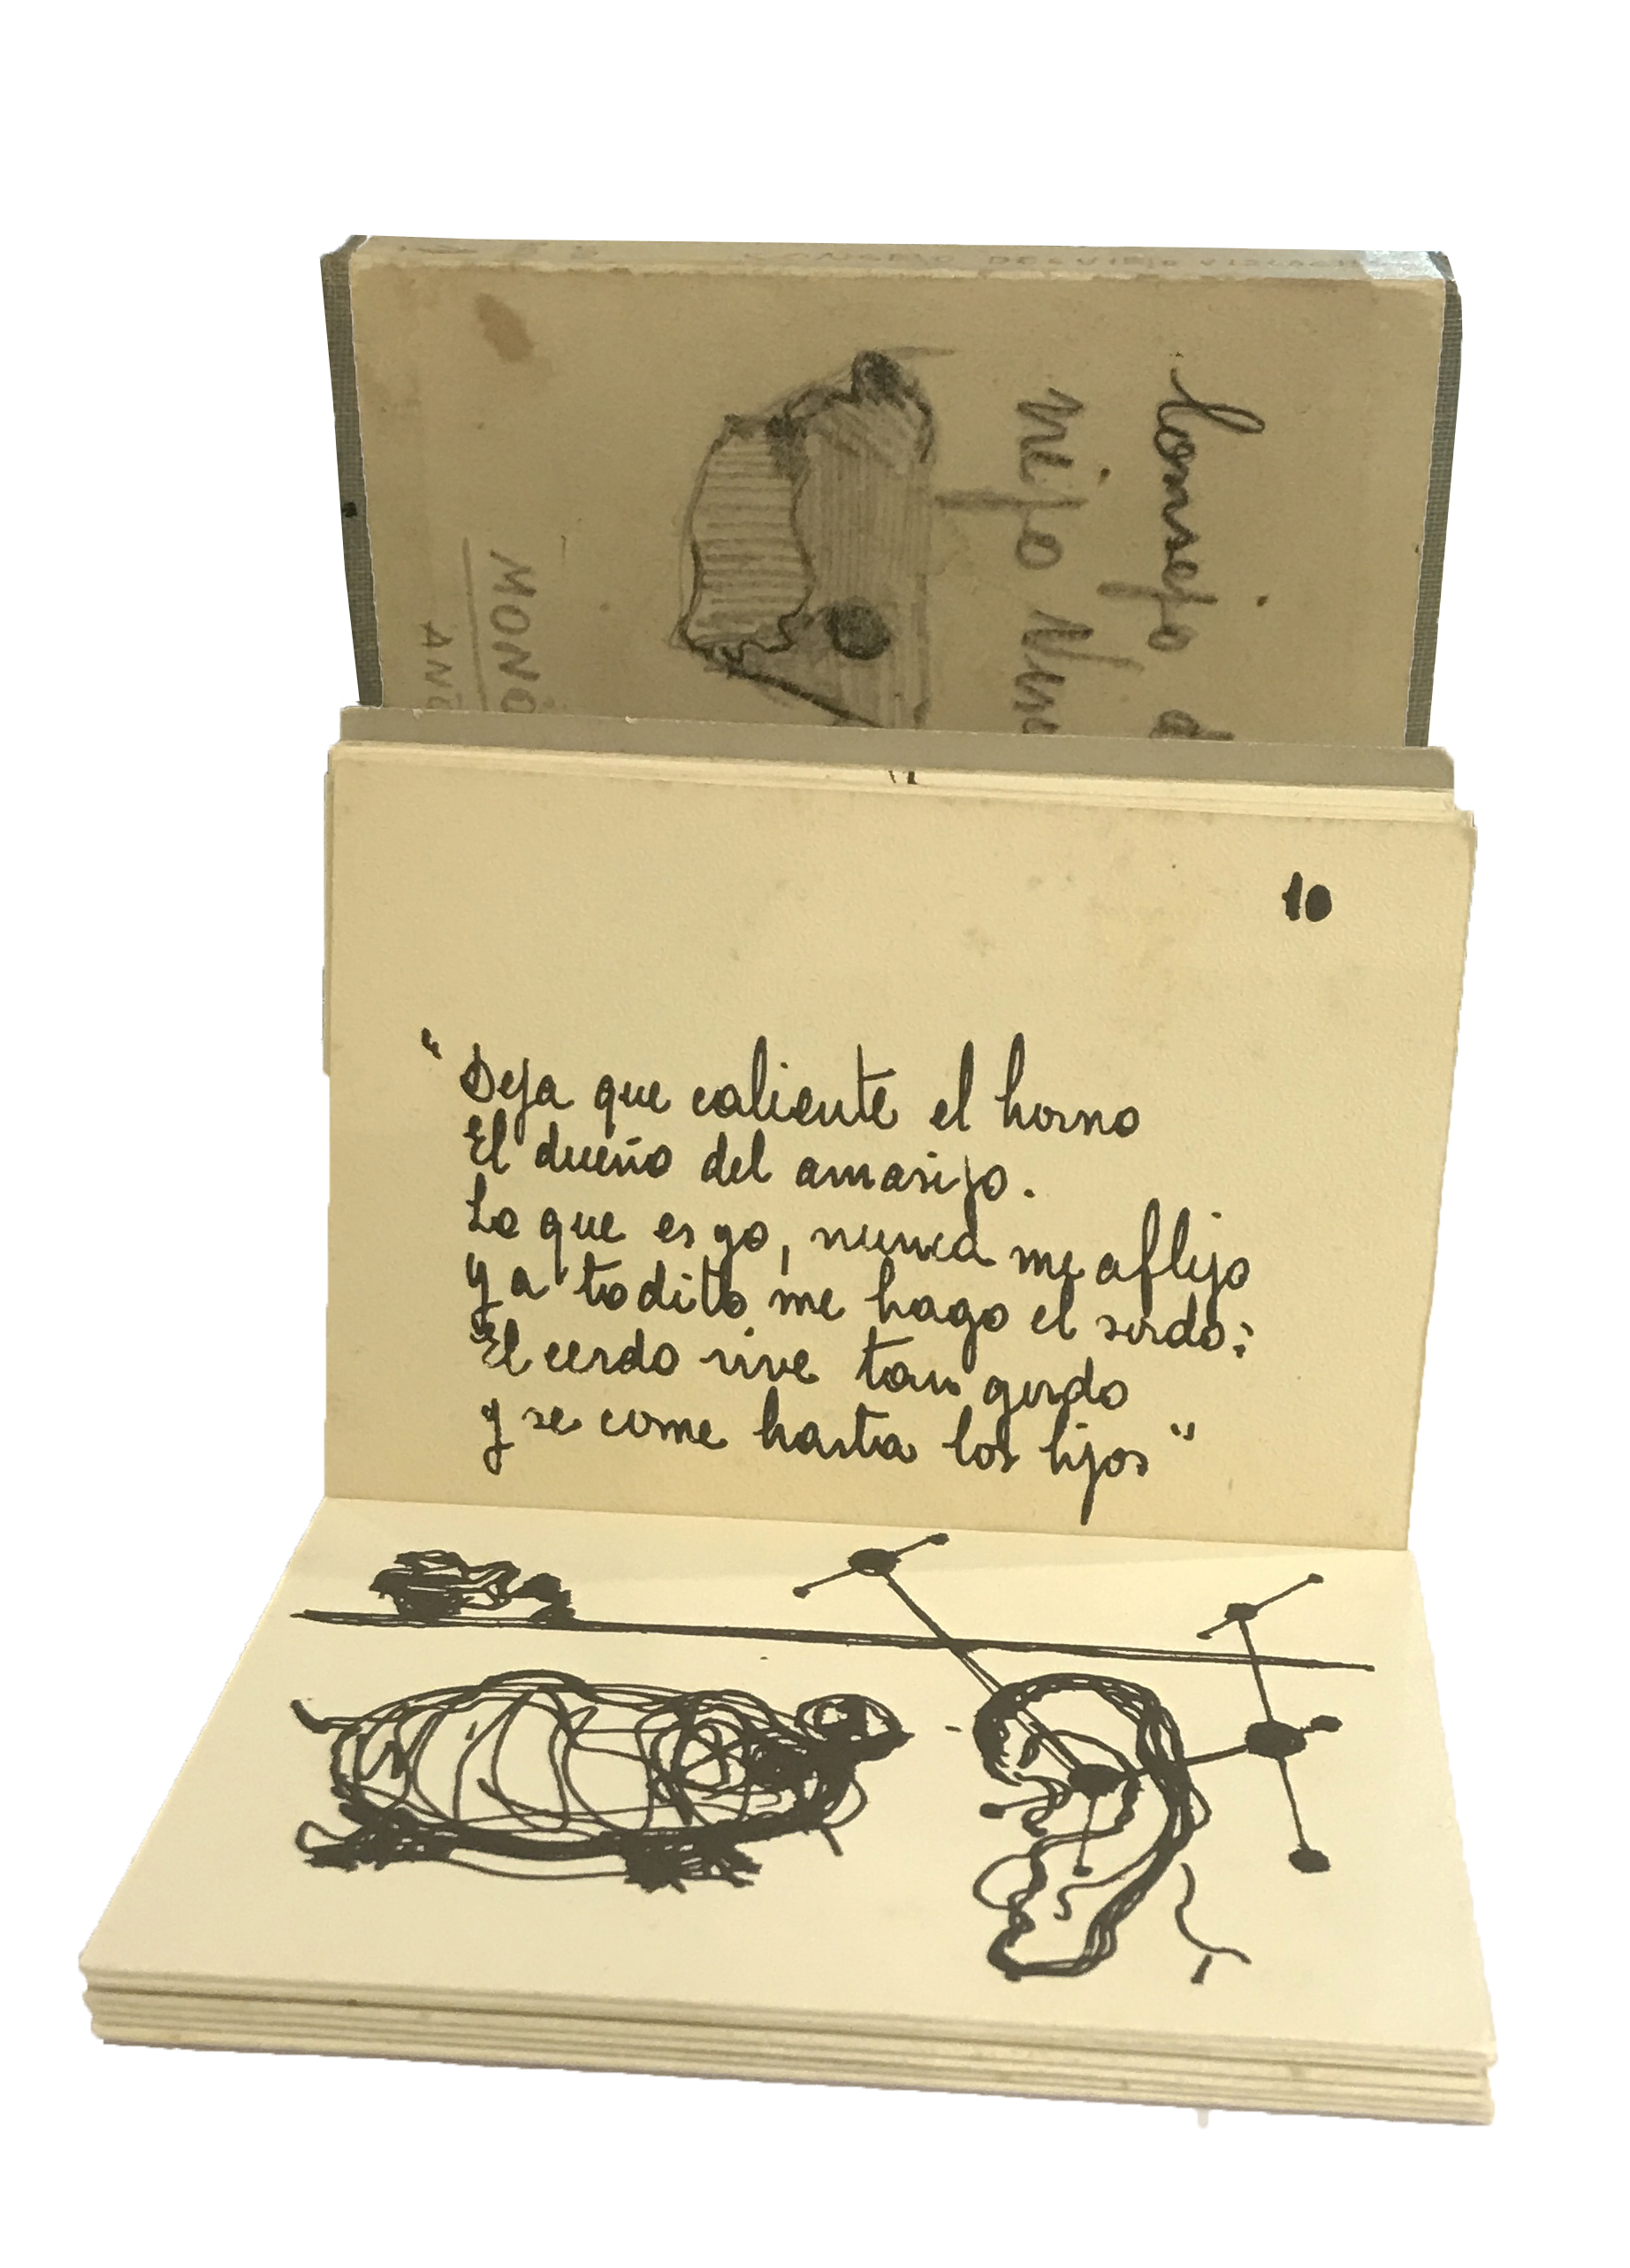 Consejo d
mijo
MONÓ
10
"Deja que caliente el horno
El dueño del amasijo.
Lo que es yo, nunca me aflijo
y a todito me hago el sordo:
El cerdo vive tan gordo
y se come hasta los hijos"